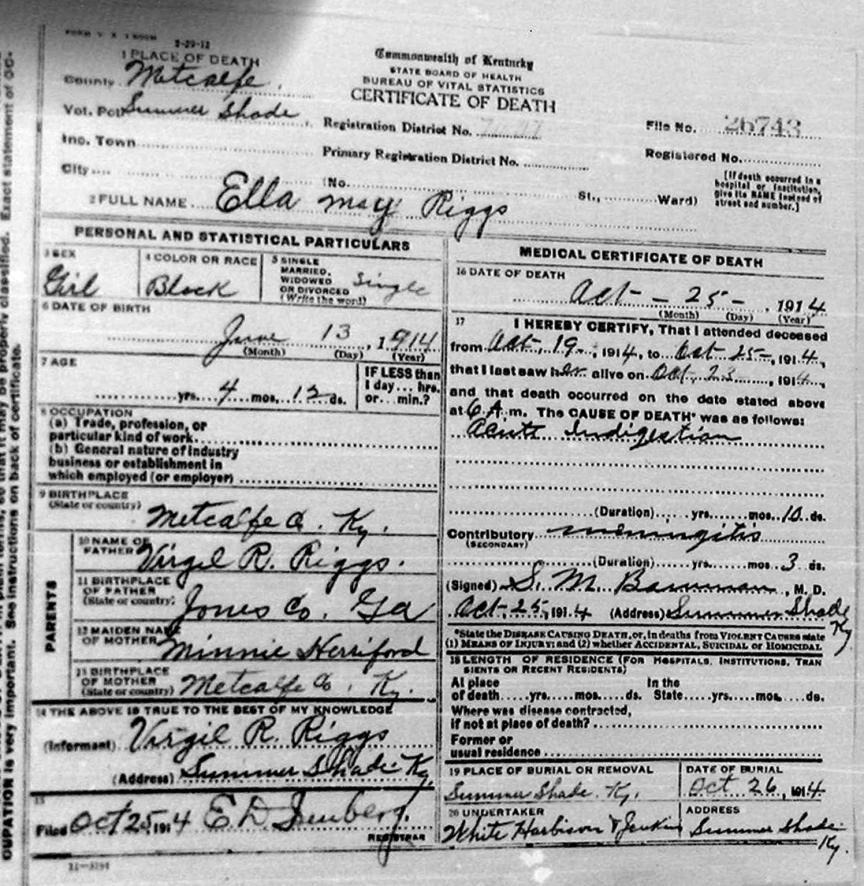 2-29-12
1 PLACE OF DEATH
County Metcalfe
Vot. Pct Summer Shade
Inc. Town
City
Commonwealth of Kentucky
STATE BOARD OF HEALTH
BUREAU OF VITAL STATISTICS
CERTIFICATE OF DEATH
Registration District No.
Primary Registration District No.
File No. 26743
Registered No.
(No. St., Ward)
[If death occurred in a
hospital or institution,
give its NAME instead of
street and number.]
2 FULL NAME Ella may Riggs
PERSONAL AND STATISTICAL PARTICULARS
3 SEX
Girl
4 COLOR OR RACE
Black
5 SINGLE
MARRIED,
WIDOWED
OR DIVORCED
(Write the word)
Single
6 DATE OF BIRTH
June 13, 1914
(Month) (Day) (Year)
7 AGE
yrs. 4 mos. 12 ds.
IF LESS than
1 day... hrs.
or... min.?
8 OCCUPATION
(a) Trade, profession, or
particular kind of work
(b) General nature of industry
business or establishment in
which employed (or employer)
9 BIRTHPLACE
(State or country)
Metcalfe Co. Ky.
PARENTS
10 NAME OF
FATHER
Virgil R. Riggs.
11 BIRTHPLACE
OF FATHER
(State or country)
Jones Co. Ga
12 MAIDEN NAME
OF MOTHER
Minnie Herriford
13 BIRTHPLACE
OF MOTHER
(State or country)
Metcalfe Co. Ky.
14 THE ABOVE IS TRUE TO THE BEST OF MY KNOWLEDGE
(Informant) Virgil R. Riggs
(Address) Summer Shade Ky.
15
Filed Oct 25, 1914 E. D.
REGISTRAR
MEDICAL CERTIFICATE OF DEATH
16 DATE OF DEATH
Oct - 25 -, 1914
(Month) (Day) (Year)
17 I HEREBY CERTIFY, That I attended deceased
from Oct, 19, 1914, to Oct 25-, 1914,
that I last saw her alive on Oct, 23, 1914,
and that death occurred on the date stated above
at 6 A.m. The CAUSE OF DEATH* was as follows:
Acute Indigestion
(Duration) yrs. mos. 10 ds.
Contributory meningitis
(SECONDARY)
(Duration) yrs. mos. 3 ds.
(Signed) S. M. Bowman, M. D.
Oct-25, 1914 (Address) Summer Shade
Ky
*State the DISEASE CAUSING DEATH, or, in deaths from VIOLENT CAUSES state
(1) MEANS OF INJURY; and (2) whether ACCIDENTAL, SUICIDAL or HOMICIDAL
18 LENGTH OF RESIDENCE (FOR HOSPITALS, INSTITUTIONS, TRAN
SIENTS OR RECENT RESIDENTS)
At place In the
of death yrs. mos. ds. State yrs. mos. ds.
Where was disease contracted,
if not at place of death?
Former or
usual residence
19 PLACE OF BURIAL OR REMOVAL
Summer Shade. Ky.
DATE OF BURIAL
Oct 26, 1914
20 UNDERTAKER
White Harbison & Jenkins
ADDRESS
Summer Shade
Ky.
OUPATION is very important. See instructions on back of certificate.
so that it may be properly classified. Exact statement of OC-